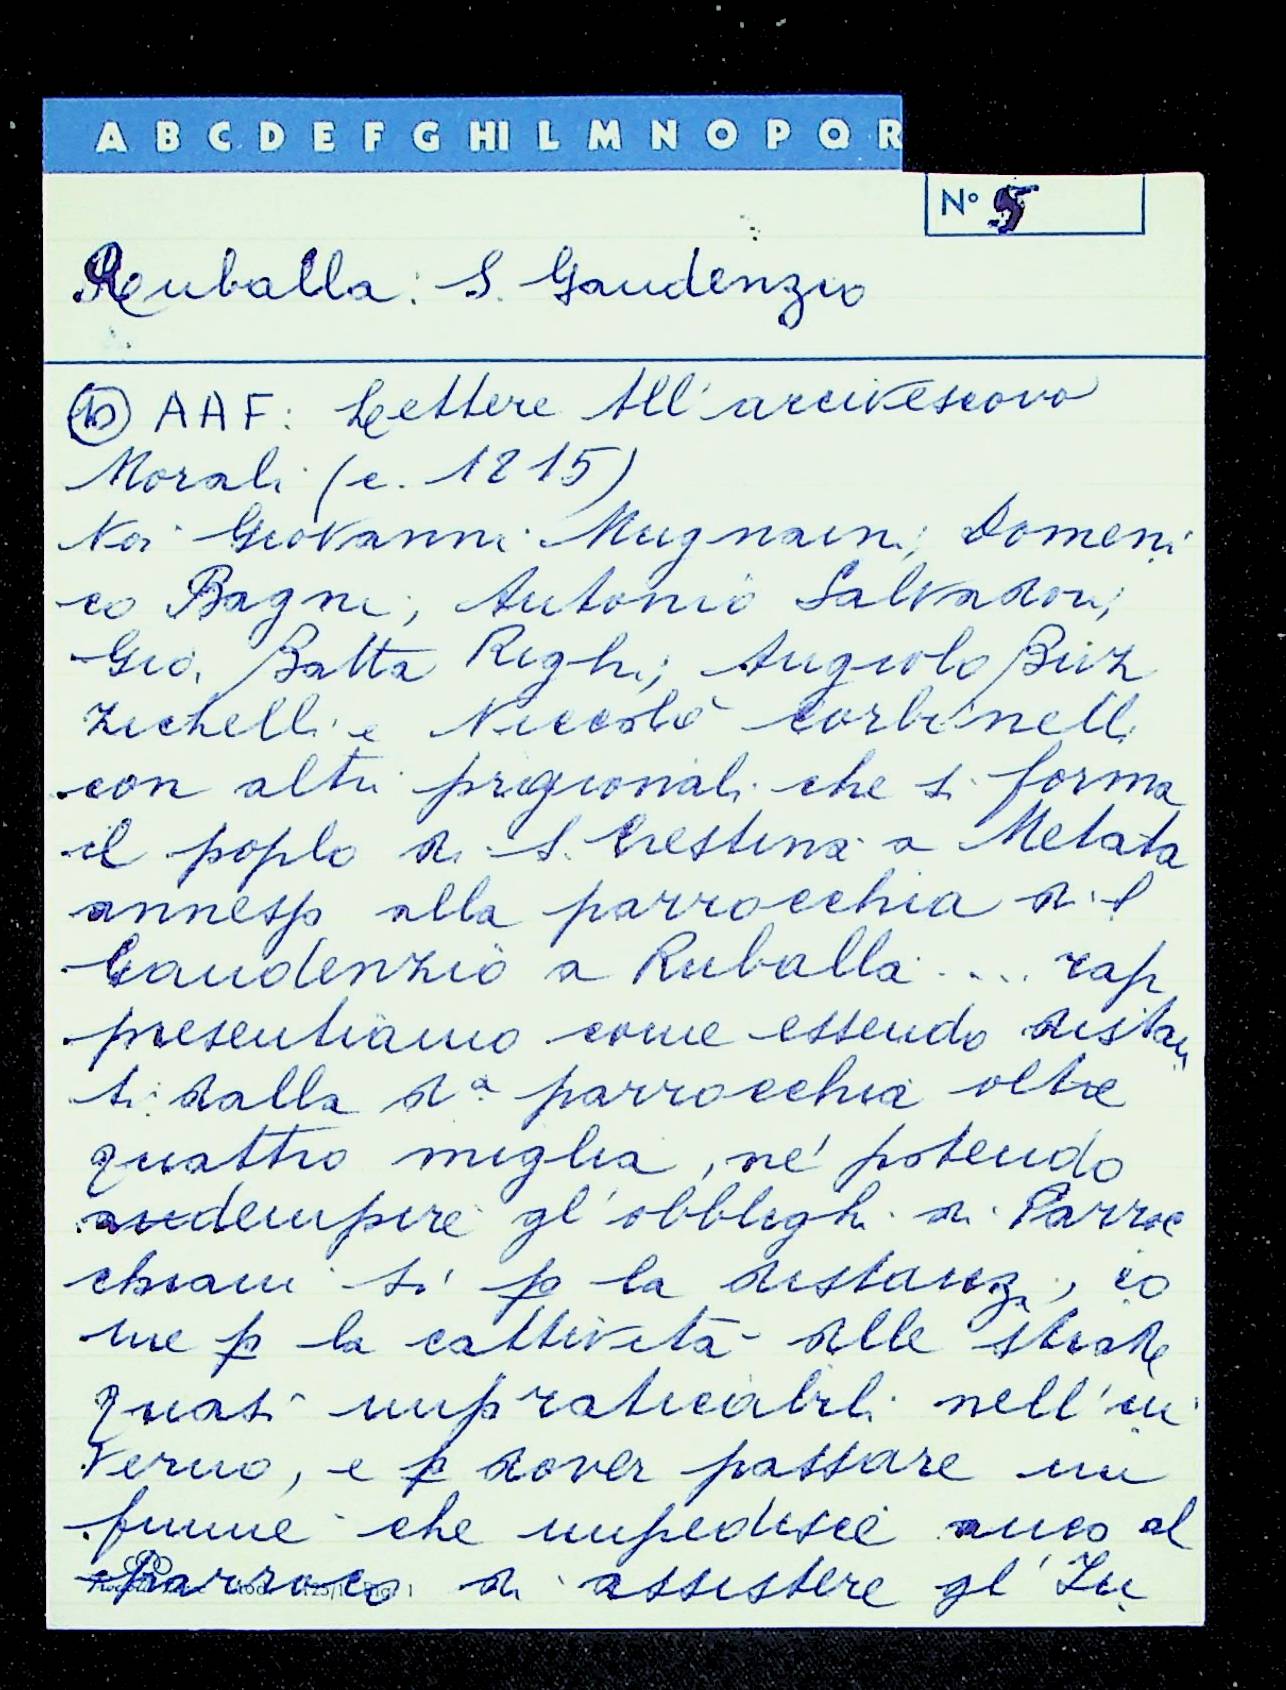 A B C D E F G HI L M N O P Q R
N° 5
Ruballa: S. Gaudenzio
10 AAF: Lettere all'arcivescovo
Morali (c. 1215)
Noi Giovanni Mugnaini; Domeni
co Bagni; Antonio Salvadori;
Gio. Batta Righi; Angiolo Biz
zichelli e Niccolò Corbinelli
con altri prigionali che si forma
il poplo di S. Crestina a Metata
annesso alla parrocchia di S
Gaudenzio a Ruballa .... rap
presentiamo come essendo distan
ti dalla da parrocchia oltre
quattro miglia, né potendo
adempire gl'obblighi di Parroc
chiani sì p la distanza, co
me p la cattività delle strade
quasi impraticabili nell'in
verno, e p dover passare un
fiume che impedisce anco al
Parroco di assistere gl'In